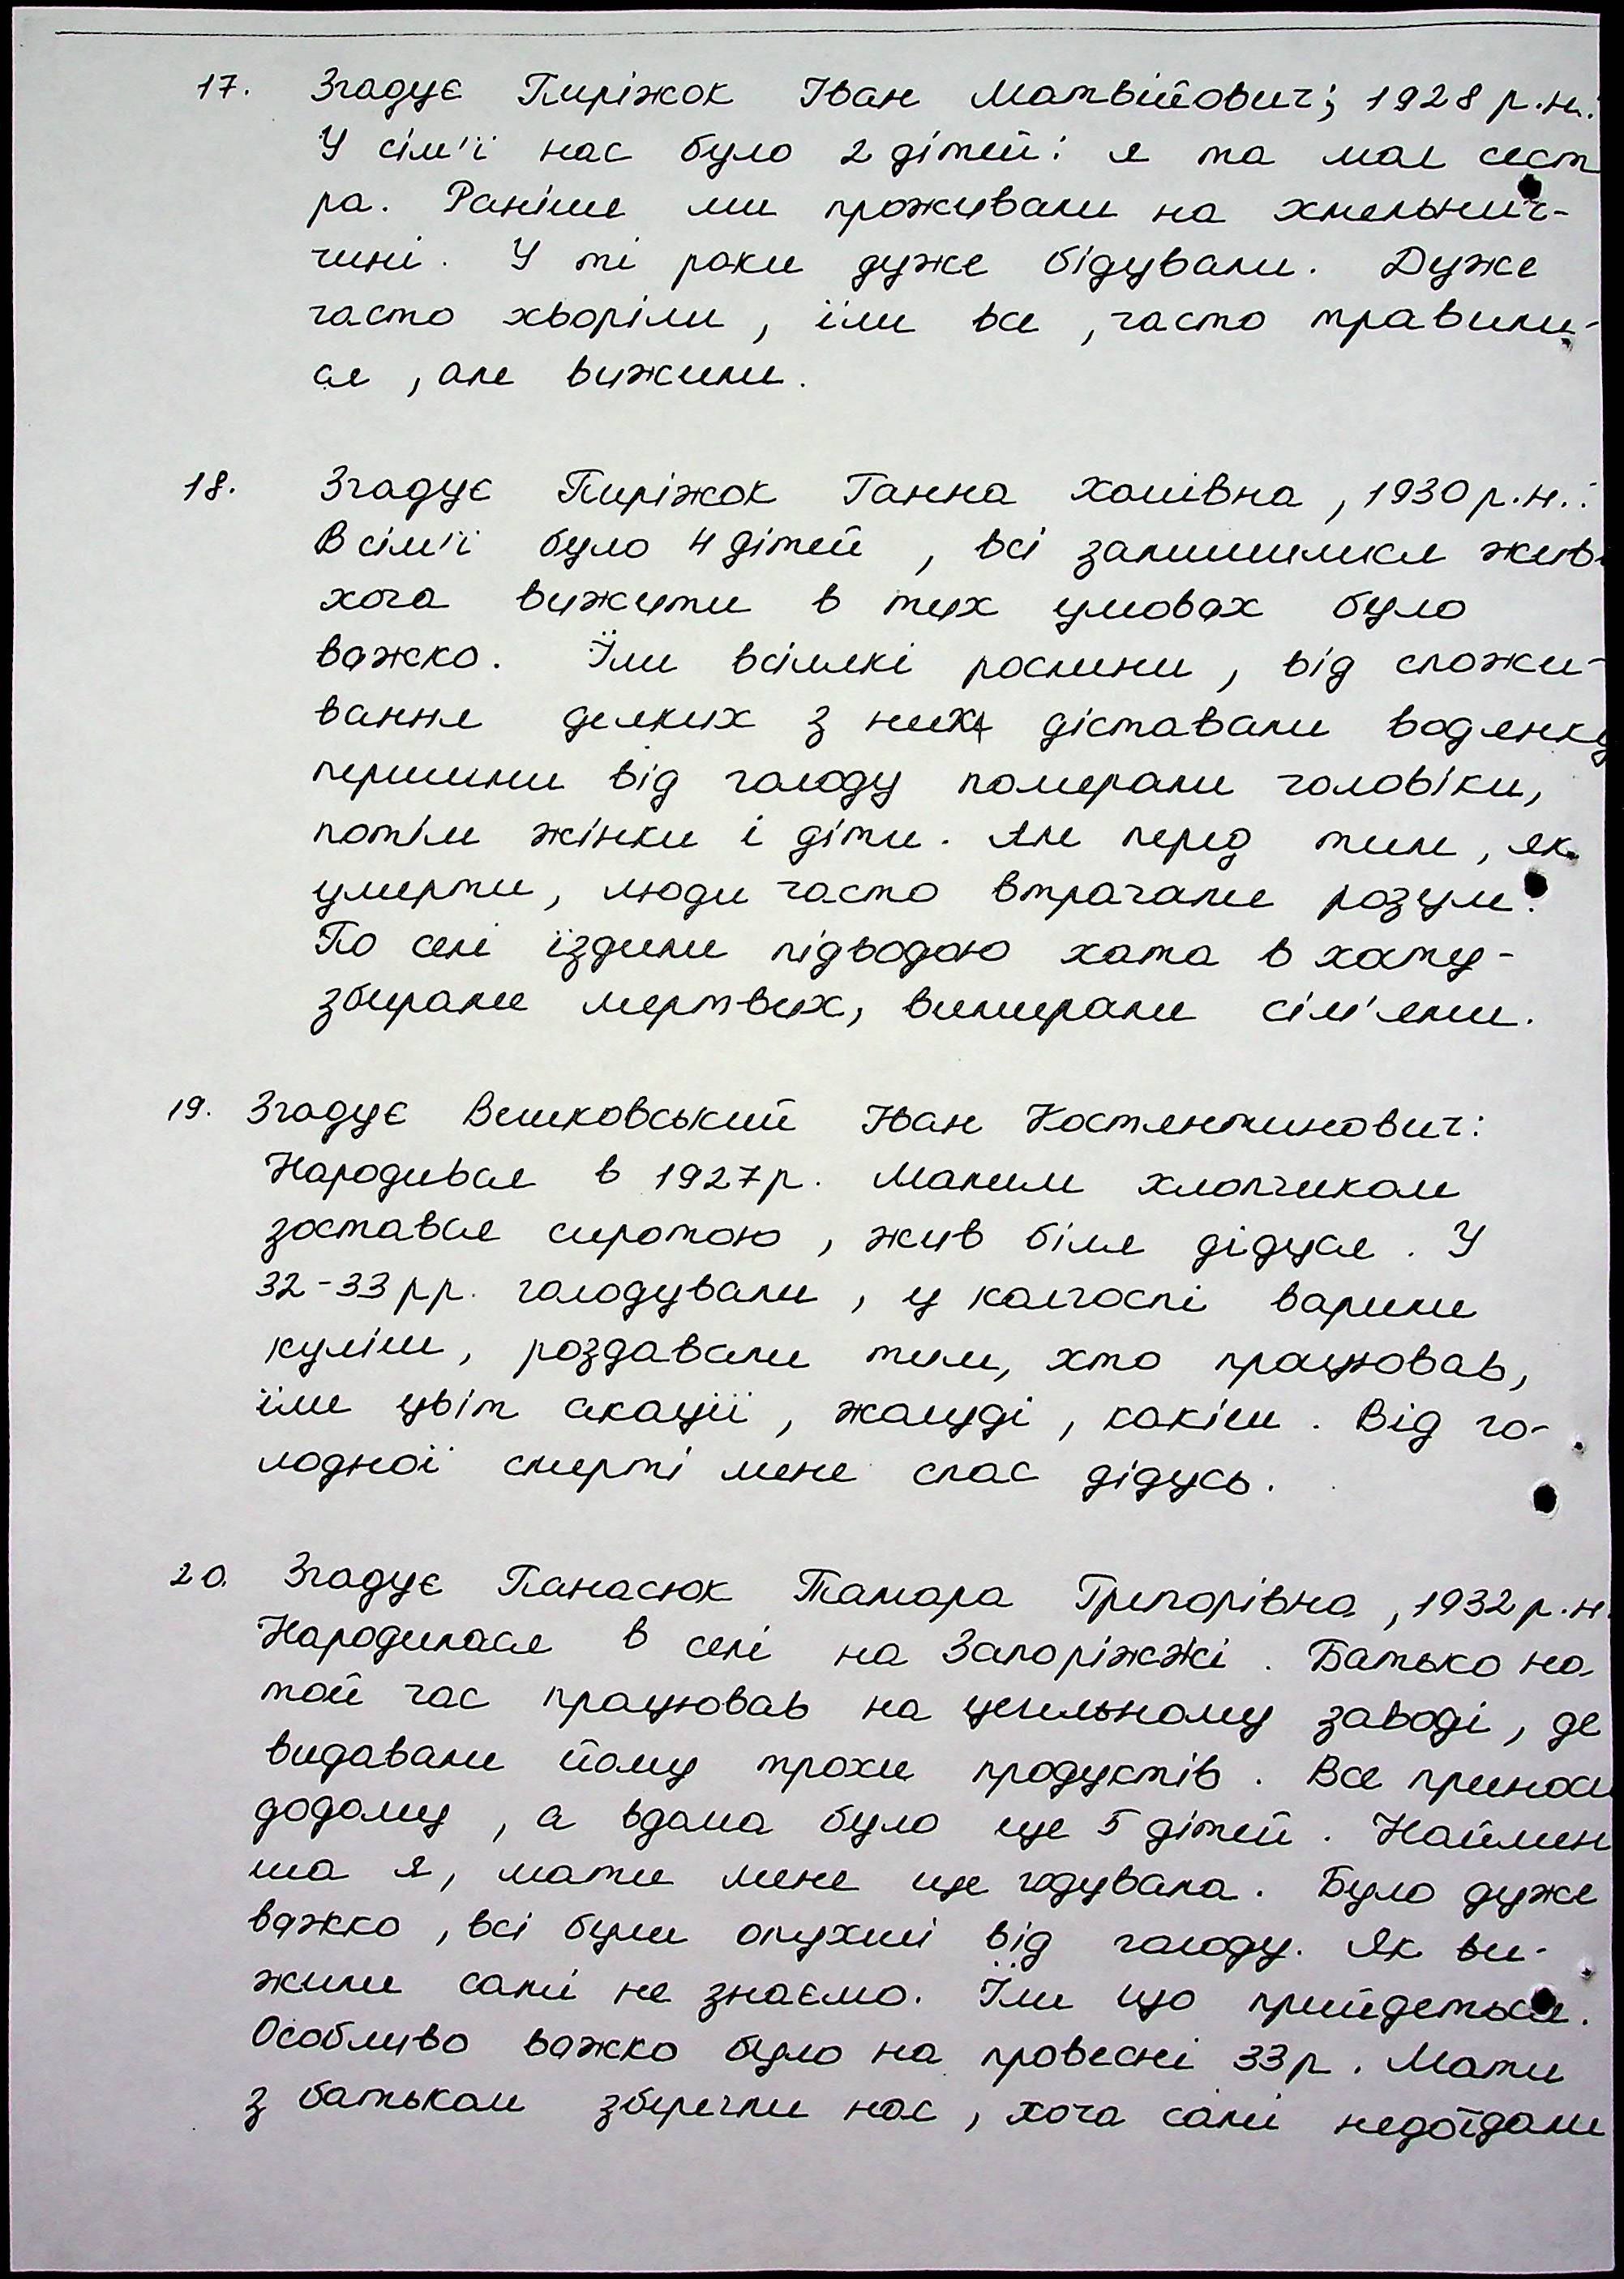 17. Згадує Пиріжок Іван Матвійович; 1928 р.н.:
У сім'ї нас було 2 дітей: я та моя сест
ра. Раніше ми проживали на хмельнич-
чині. У ті роки дуже бідували. Дуже
часто хворіли, їли все, часто травили-
ся, але вижили.
18. Згадує Пиріжок Ганна Хомівна, 1930 р.н.:
В сім'ї було 4 дітей, всі залишилися живі
хоча вижити в тих умовах було
важко. Їли всілякі рослини, від спожи-
вання деяких з них діставали водянку
першими від голоду помирали чоловіки,
потім жінки і діти. Але перед тим, як
умерти, люди часто втрачали розум.
По селі їздили підводою хата в хату-
збирали мертвих, вимирали сім'ями.
19. Згадує Вешковський Іван Костянтинович:
Народився в 1927р. Малим хлопчиком
зостався сиротою, жив біля дідуся. У
32-33 рр. голодували, у колгоспі варили
куліш, роздавали тим, хто працював,
їли цвіт акації, жолуді, какіш. Від го-
лодної смерті мене спас дідусь.
20. Згадує Панасюк Тамара Григорівна, 1932 р.н.
Народилася в селі на Запоріжжі. Батько на
той час працював на цегельному заводі, де
видавали йому трохи продуктів. Все приноси
додому, а вдома було ще 5 дітей. Наймен
ша я, мати мене ще годувала. Було дуже
важко, всі були опухші від голоду. Як ви-
жили самі не знаємо. Їли що прийдеться.
Особливо важко було на провесні 33р. Мати
з батьком зберегли нас, хоча самі недоїдали